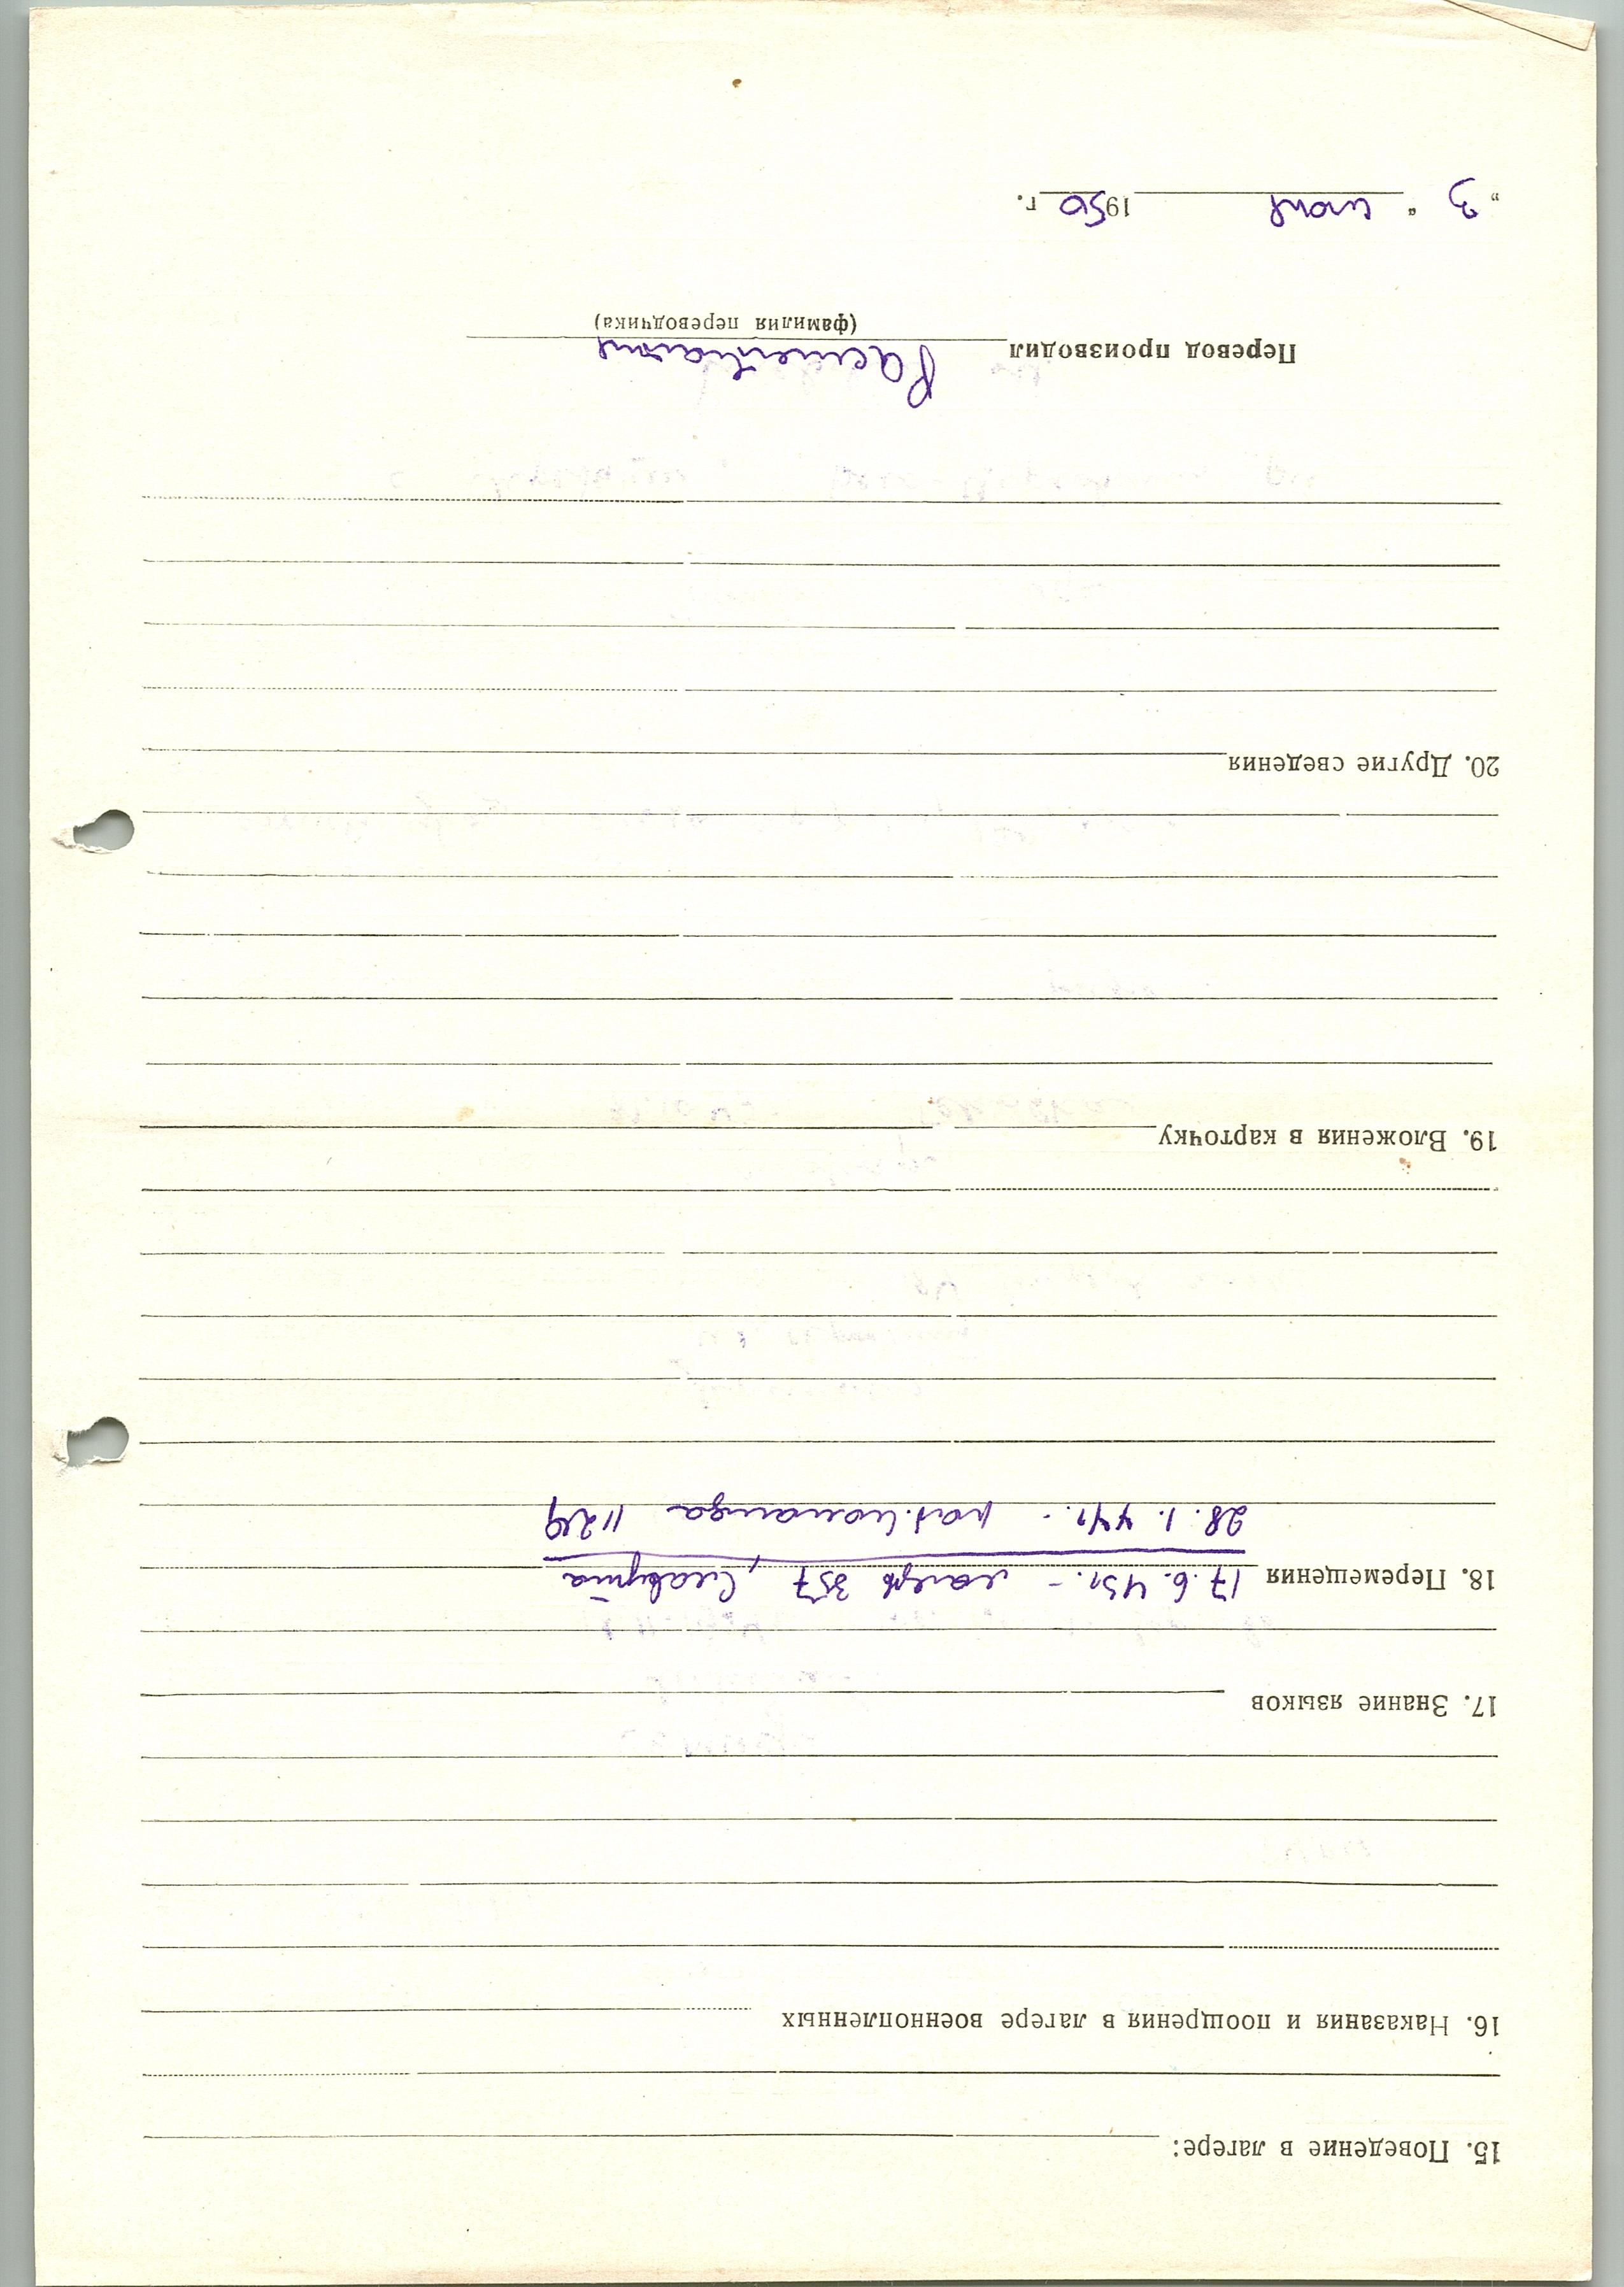 15. Поведение в лагере:
16. Наказания и поощрения в лагере военнопленных
17. Знание языков
18. Перемещения 17.6.43г. – лагерь 357, Славута
28.1.44г. – раб. команда 1129
19. Вложения в карточку
20. Другие сведения
Перевод производил
(фамилия переводчика)
„3“ июня 1950 г.